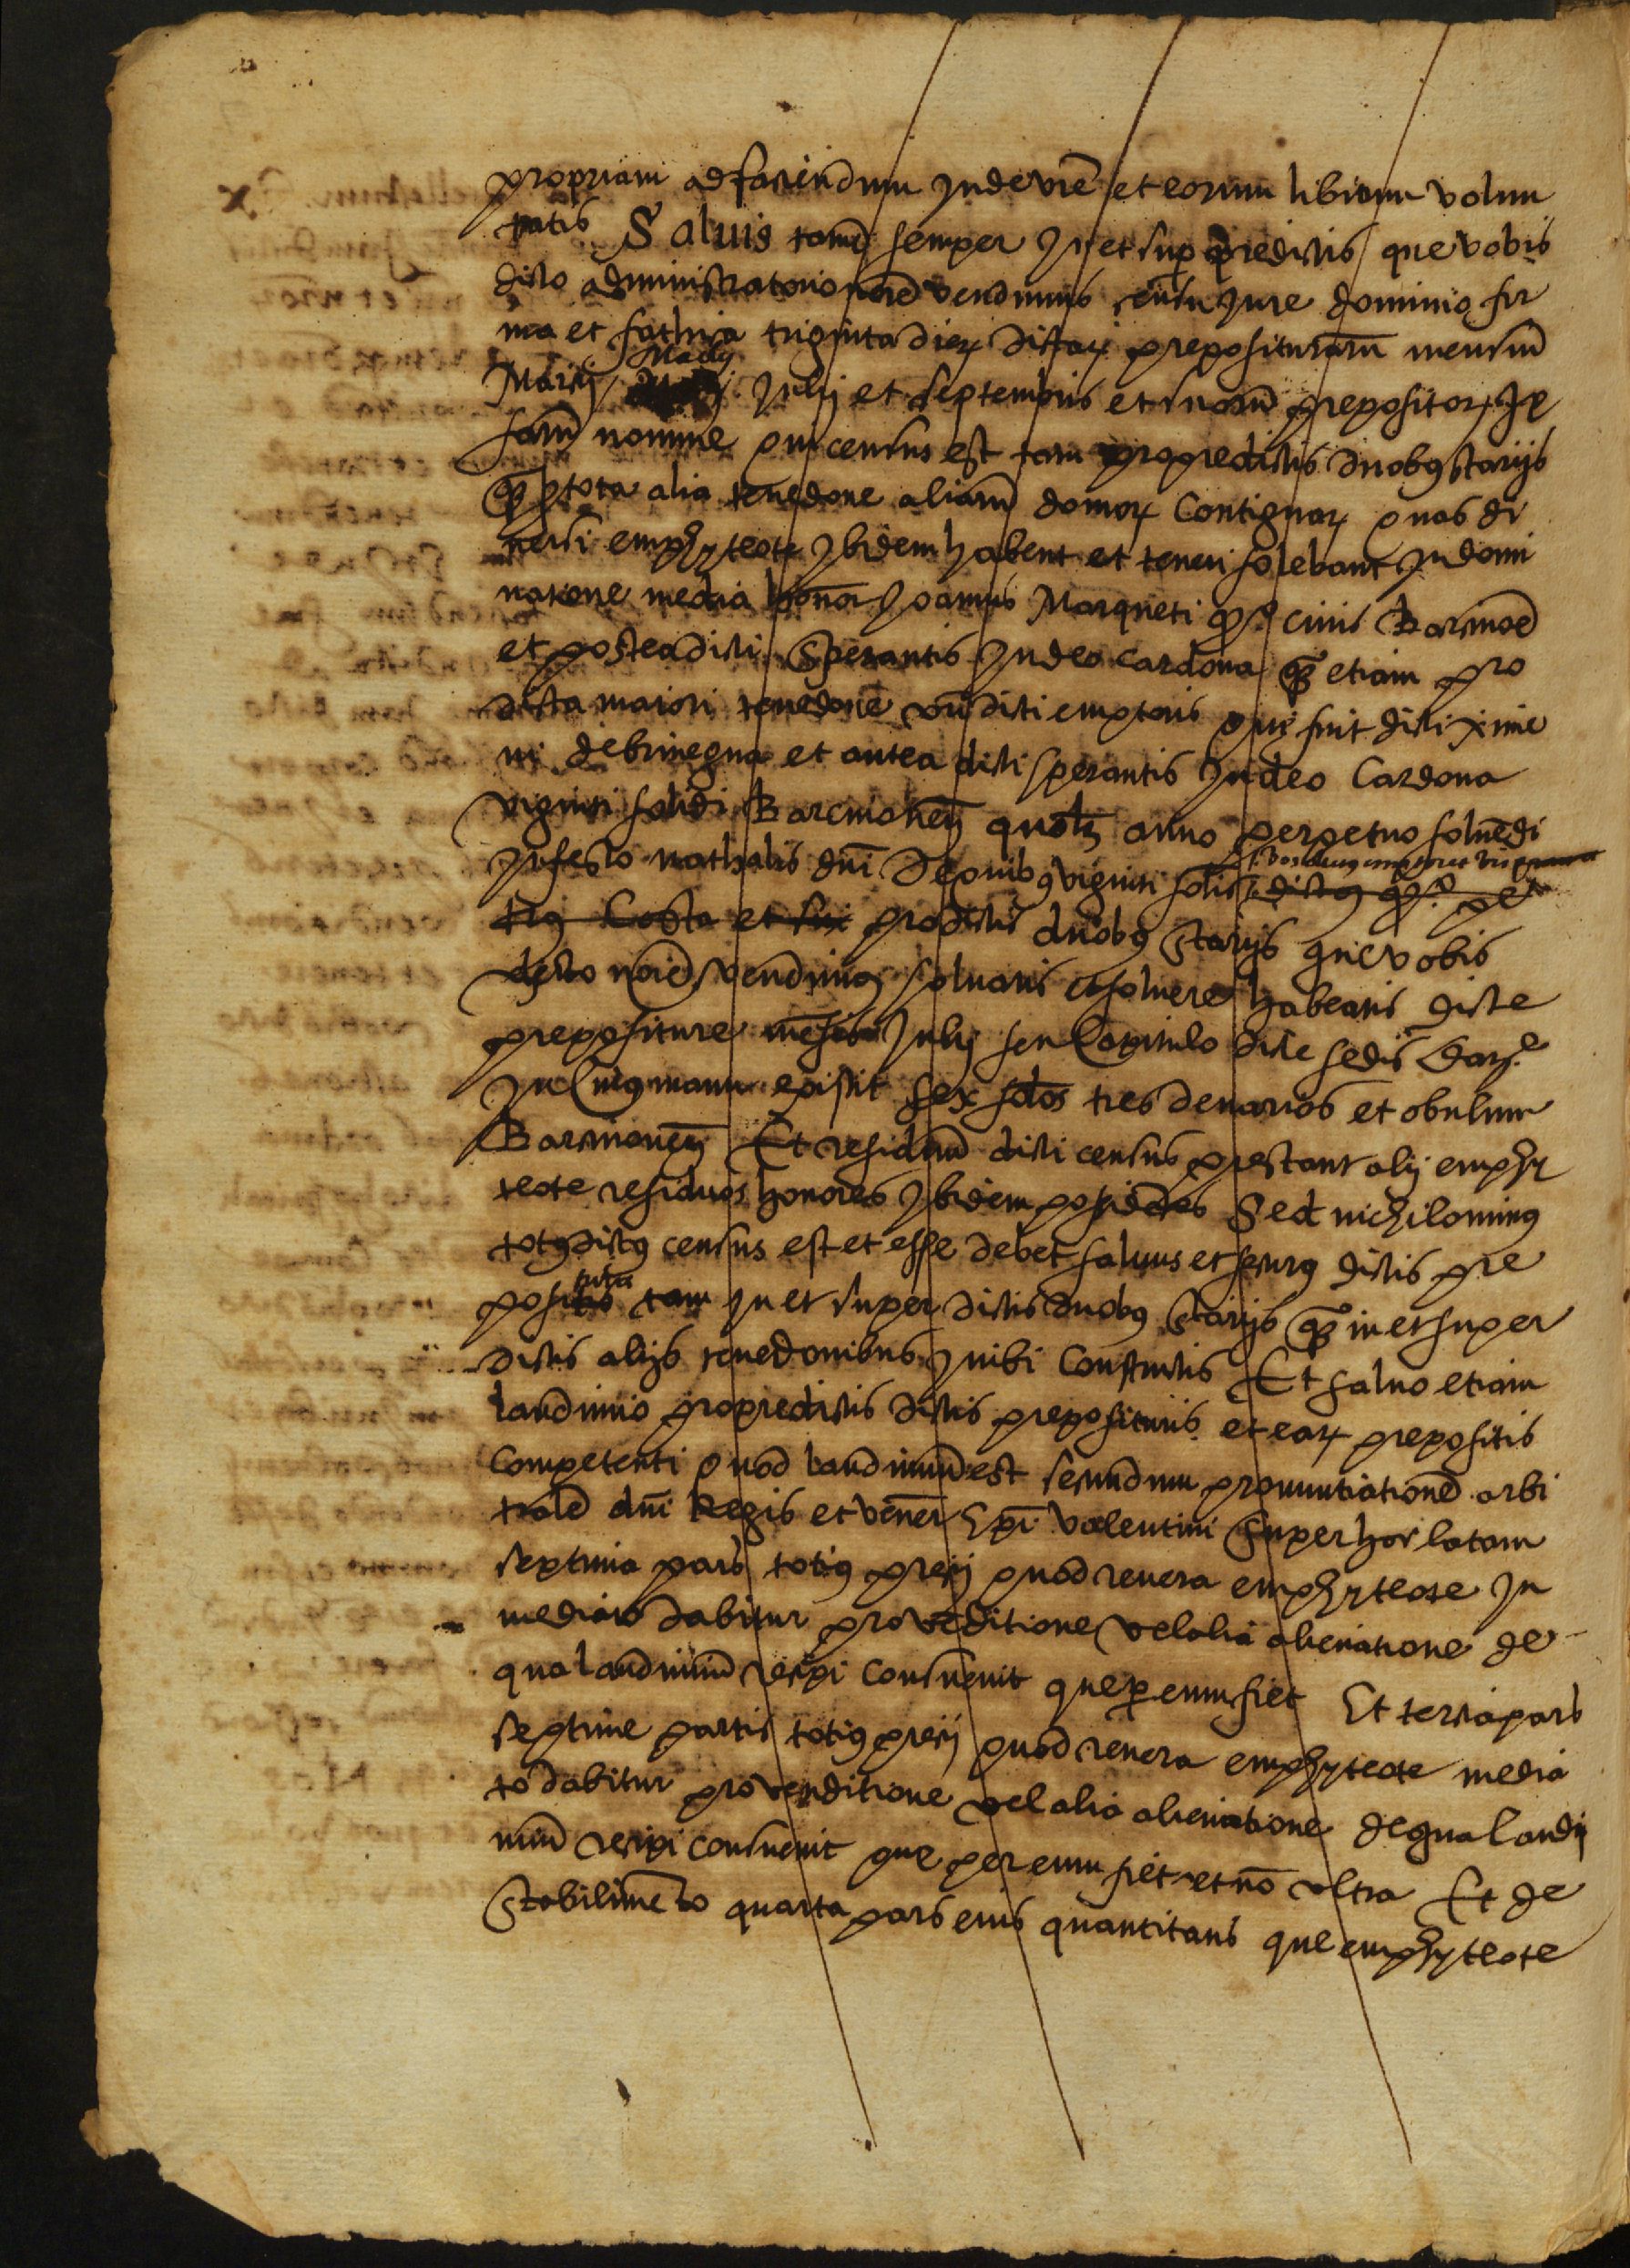 propriam ad faciendum Inde vr̃e et eorum liberam volun
tatis Saluis tamẽ semper In et sup predictis que vobis
dicto administratorio noĩe vendimus censu Jure dominio fir
ma et fathica triginta dierꝝ dictarꝝ prepositurarũ mensiũ
Marcij Madij Julij et Septembris et suorũ prepositorꝝ Ip
sarũ nomine qui census est tam pro predictis duobꝰ starijs
qꝫ p tota alia tenedone aliarũ domorꝝ Contiguarꝝ quas di
uersi emphyteote Ibidem habent et teneri solebant In domi
natione media honor Joannis Marqueti qº. ciuis Barcinoẽ
et postea dicti Sperantis Indeo Cardona qꝫ etiam pro
dicta maiori tenedone vñ dicti emptoris que fuit dicti xime
ni de brinegua et antea dicti sperantis Indeo Cardona
viginti solidi Barcinoneñ quolꝫ anno perpetuo soluẽdi
In festo nathalis dnĩ De quibꝰ viginti solis
tus Costa et sui pro dictis duobꝰ starijs que vobis
dicto noĩe vendimus soluatis et soluere habeatis dicte
prepositure mẽsis Julij seu Capitulo dicte sedis Barꝫ.
In Cuiꝰ manu existit sex solos tres denarios et obulum
Barcinoneñ Et residuũ dicti census prestant alij emphy
teote residuos honores Ibidem posidẽtes Sed nichilominꝰ
totꝰ dictꝰ census est et esse debet saluus et securꝰ dictis pre
positis tam In et super dictis duobꝰ Starijs qꝫ in et super
dictis alijs tenedonibus Inibi Constructis Et saluo etiam
laudimio pro predictis dictis prepositiuris et earꝝ prepositis
Competenti quod laudimiũ est secundum pronuntiationẽ arbi
tralẽ dnĩ Regis et vener Epĩ valentini super hoc latam
septima pars totiꝰ precij quod reuera emphyteote In
mediato dabitur pro vẽditione vel alia alienatione de
qua laudimiũ recipi Consueuit que p eum fiet Et tercia pars
septime partis totiꝰ precij quod reuera emphyteote media
to dabitur pro venditione vel alia alienatione de qua laudi
miũ recipi consueuit que per eum fiet et nõ vltra Et de
Stabilimẽto quarta pars eius quantitatis que emphyteote